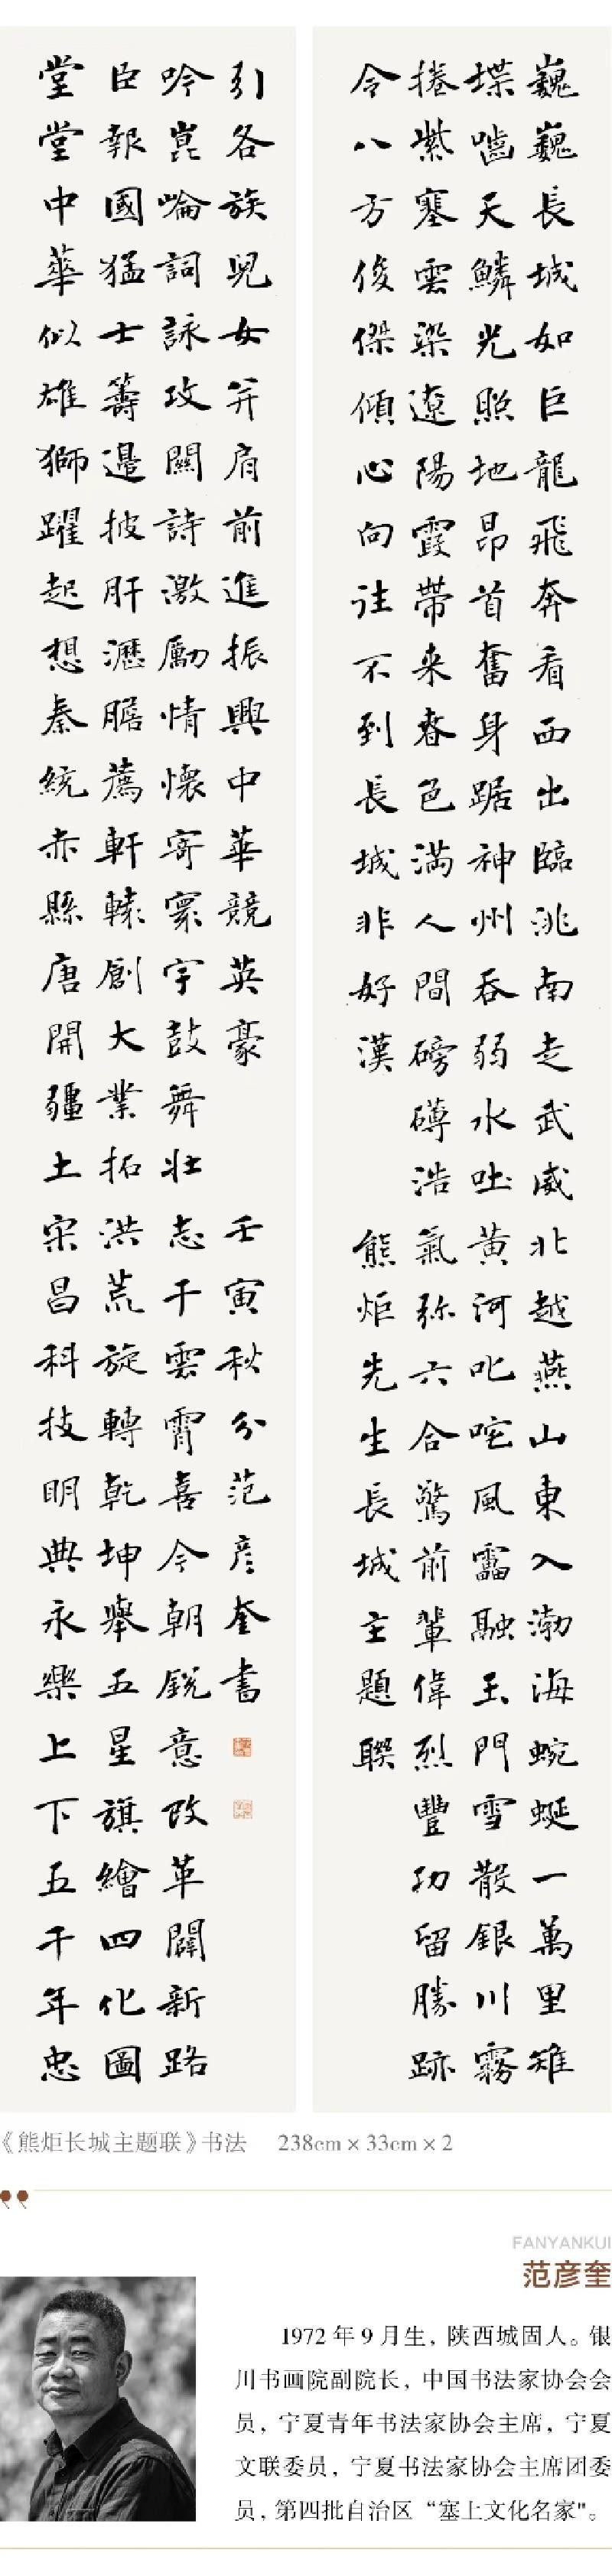 巍巍長城如巨龍飛奔看西出臨洮南走武威北越燕山東入渤海蜿蜒一萬里雉
堞嚙天鱗光照地昂首奮身踞神州吞弱水吐黃河叱咤風靁融玉門雪散銀川霧
捲紫塞雲染遼陽霞帶来春色滿人間磅礴浩氣弥六合驚前輩偉烈豐功留勝跡
令八方俊傑傾心向往不到長城非好漢 熊炬先生長城主題聯
堂堂中華似雄獅躍起想秦統赤縣唐開疆土宋昌科技明典永樂上下五千年忠
臣報國猛士籌邊披肝瀝膽薦軒轅創大業拓洪荒旋轉乾坤舉五星旗繪四化圖
吟崑崙詞詠攻關詩激勵情懷寄寰宇鼓舞壯志干雲霄喜今朝銳意改革闢新路
引各族兒女并肩前進振興中華競英豪 壬寅秋分范彦奎書
《熊炬长城主题联》书法 238cm×33cm×2
FANYANKUI
范彦奎
1972年9月生，陕西城固人。银
川书画院副院长，中国书法家协会会
员，宁夏青年书法家协会主席，宁夏
文联委员，宁夏书法家协会主席团委
员，第四批自治区“塞上文化名家"。